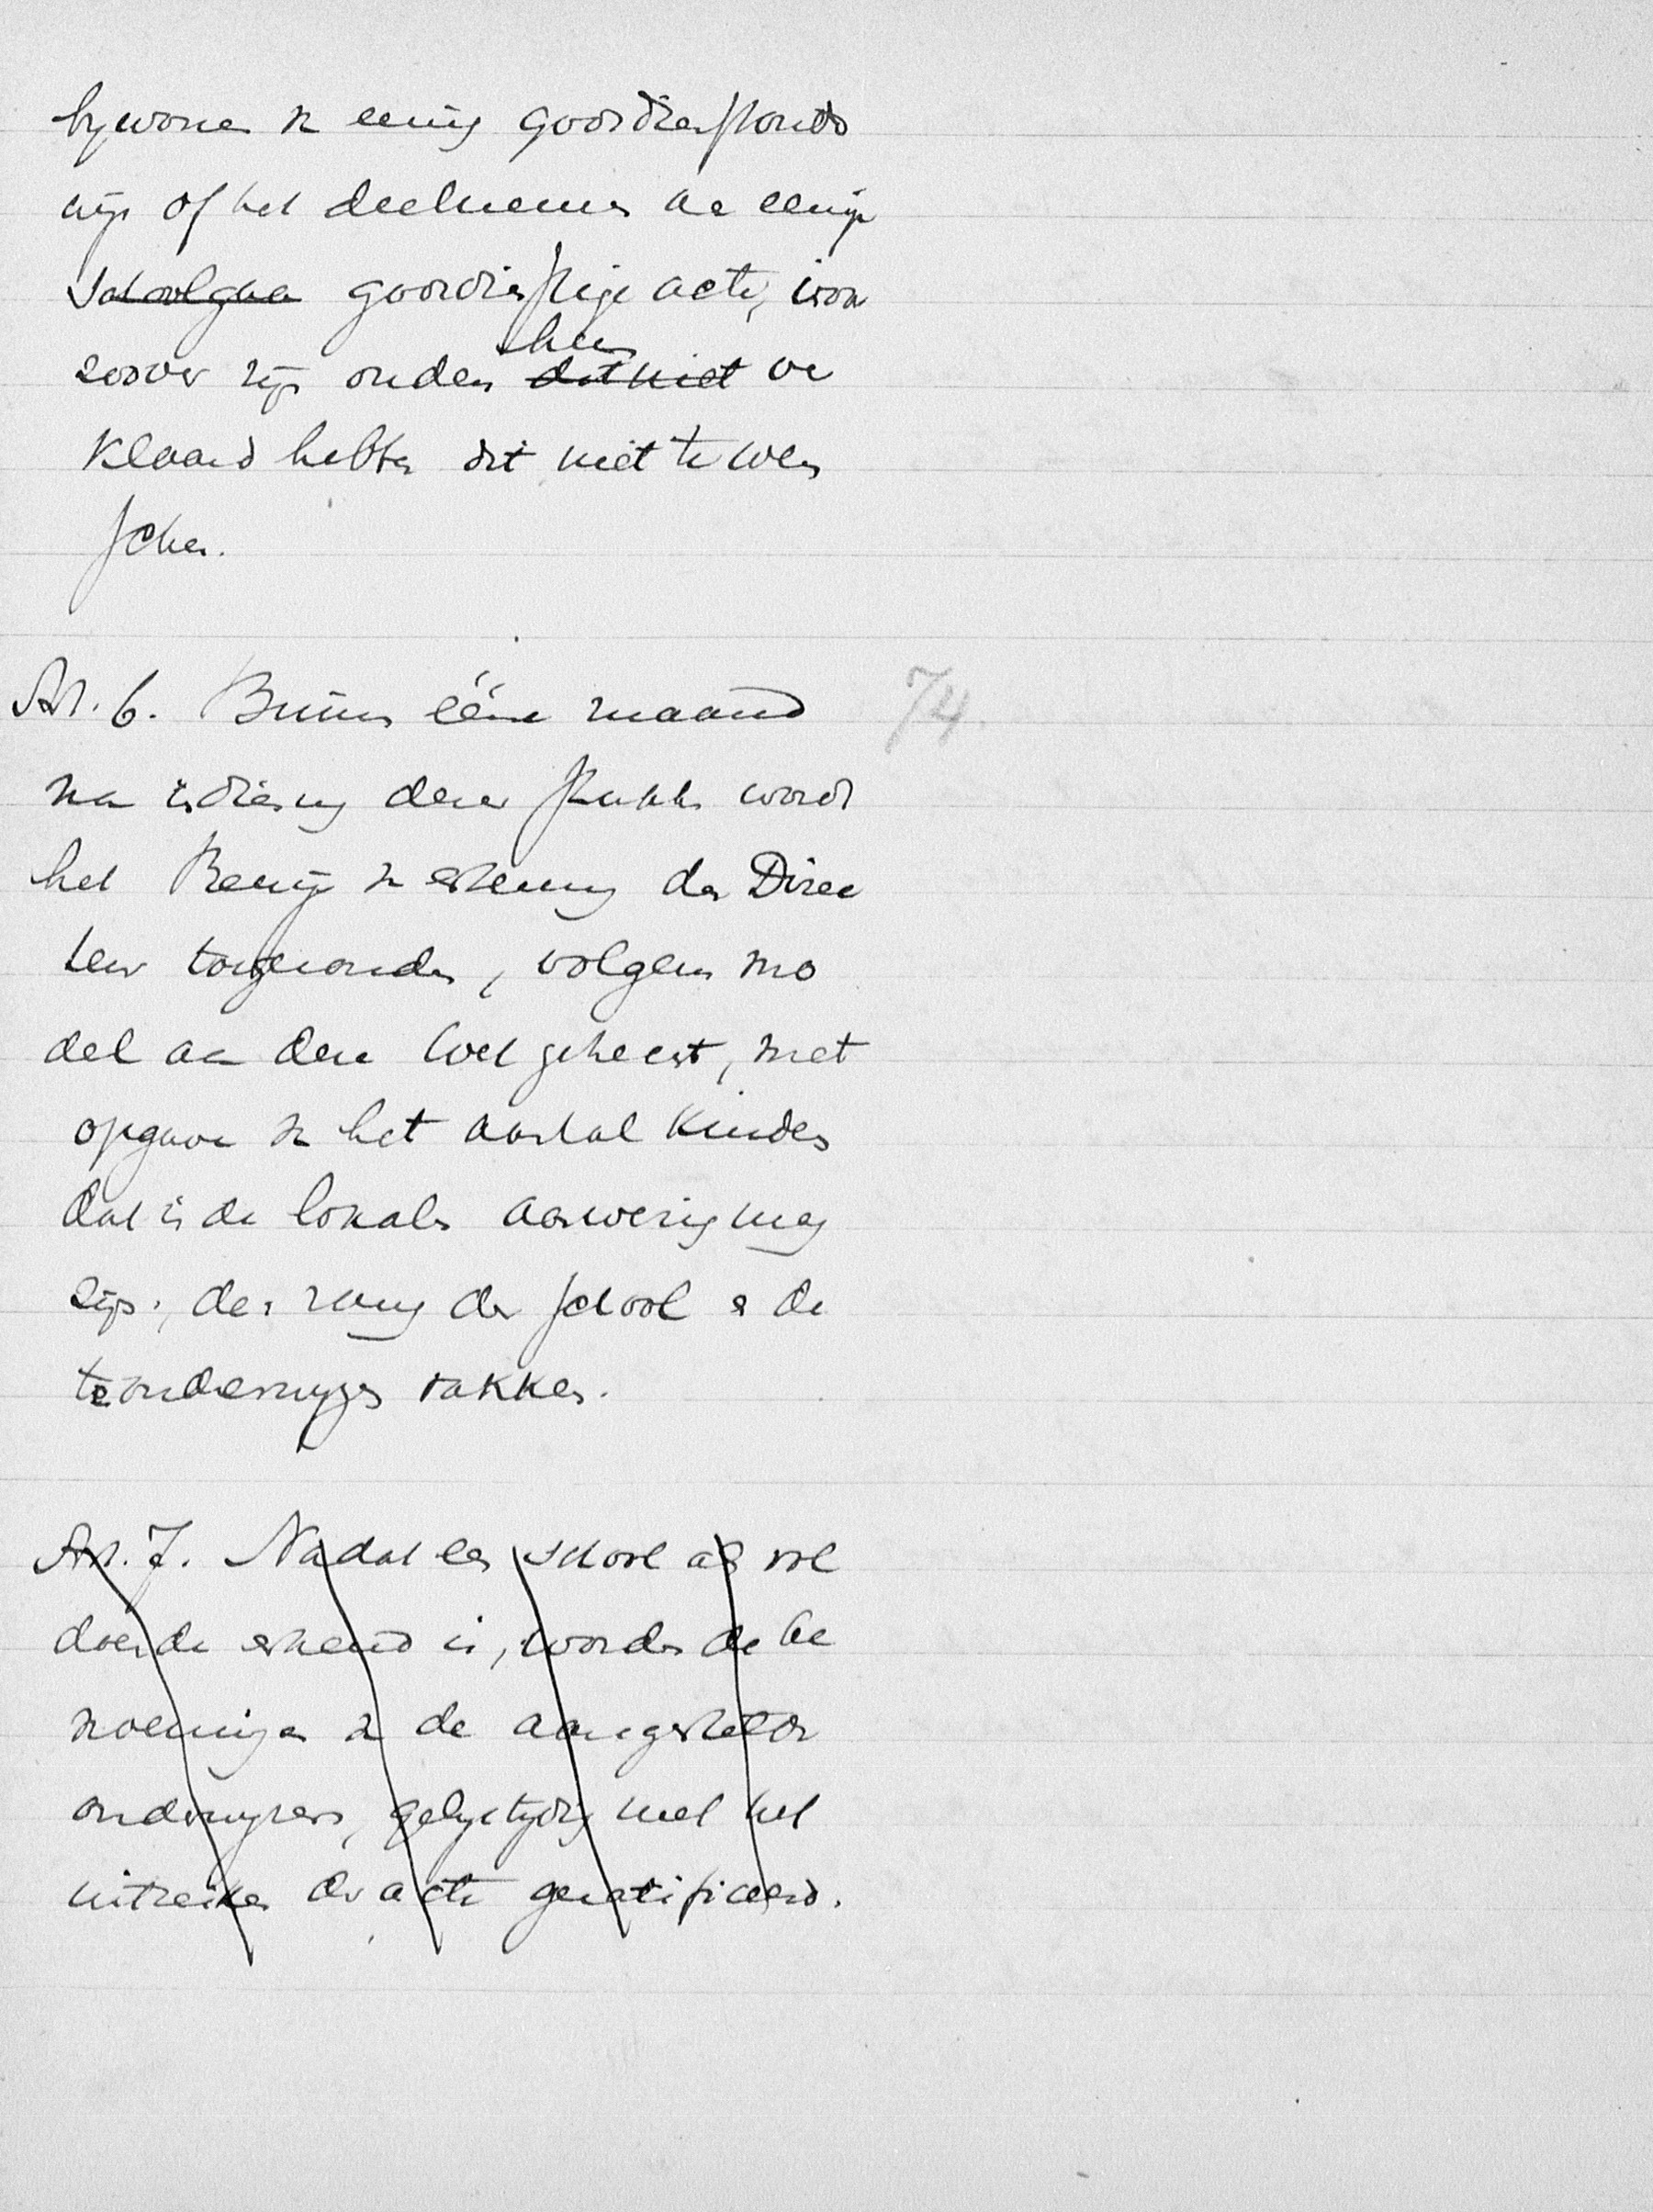 bywonen van eenig godsdienstonder
wijs of het deelnemen aan eenige
schoolgaa godsdienstige acte, voor
hun
zoover zijn ouders dit niet ver
klaard hebben dit niet te wen
schen.
Art. 6. Binnen ééne maand 74.
na indiening dezer stukken wordt
het Bewijs van erkenning den Direc
teur toegezonden, volgens mo
del aan deze Wet gehecht, met
opgave van het aantal kinderen
dat in de lokalen aanwezig mag
zijn, den rang der school en de
te onderwijzen vakken.
Art. 7. Nadat een school als vol
doende erkend is, worden de be
noemingen van de aangestelde
onderwijzers, gelijktijdig met het
uitreiken der acte geratificeerd.